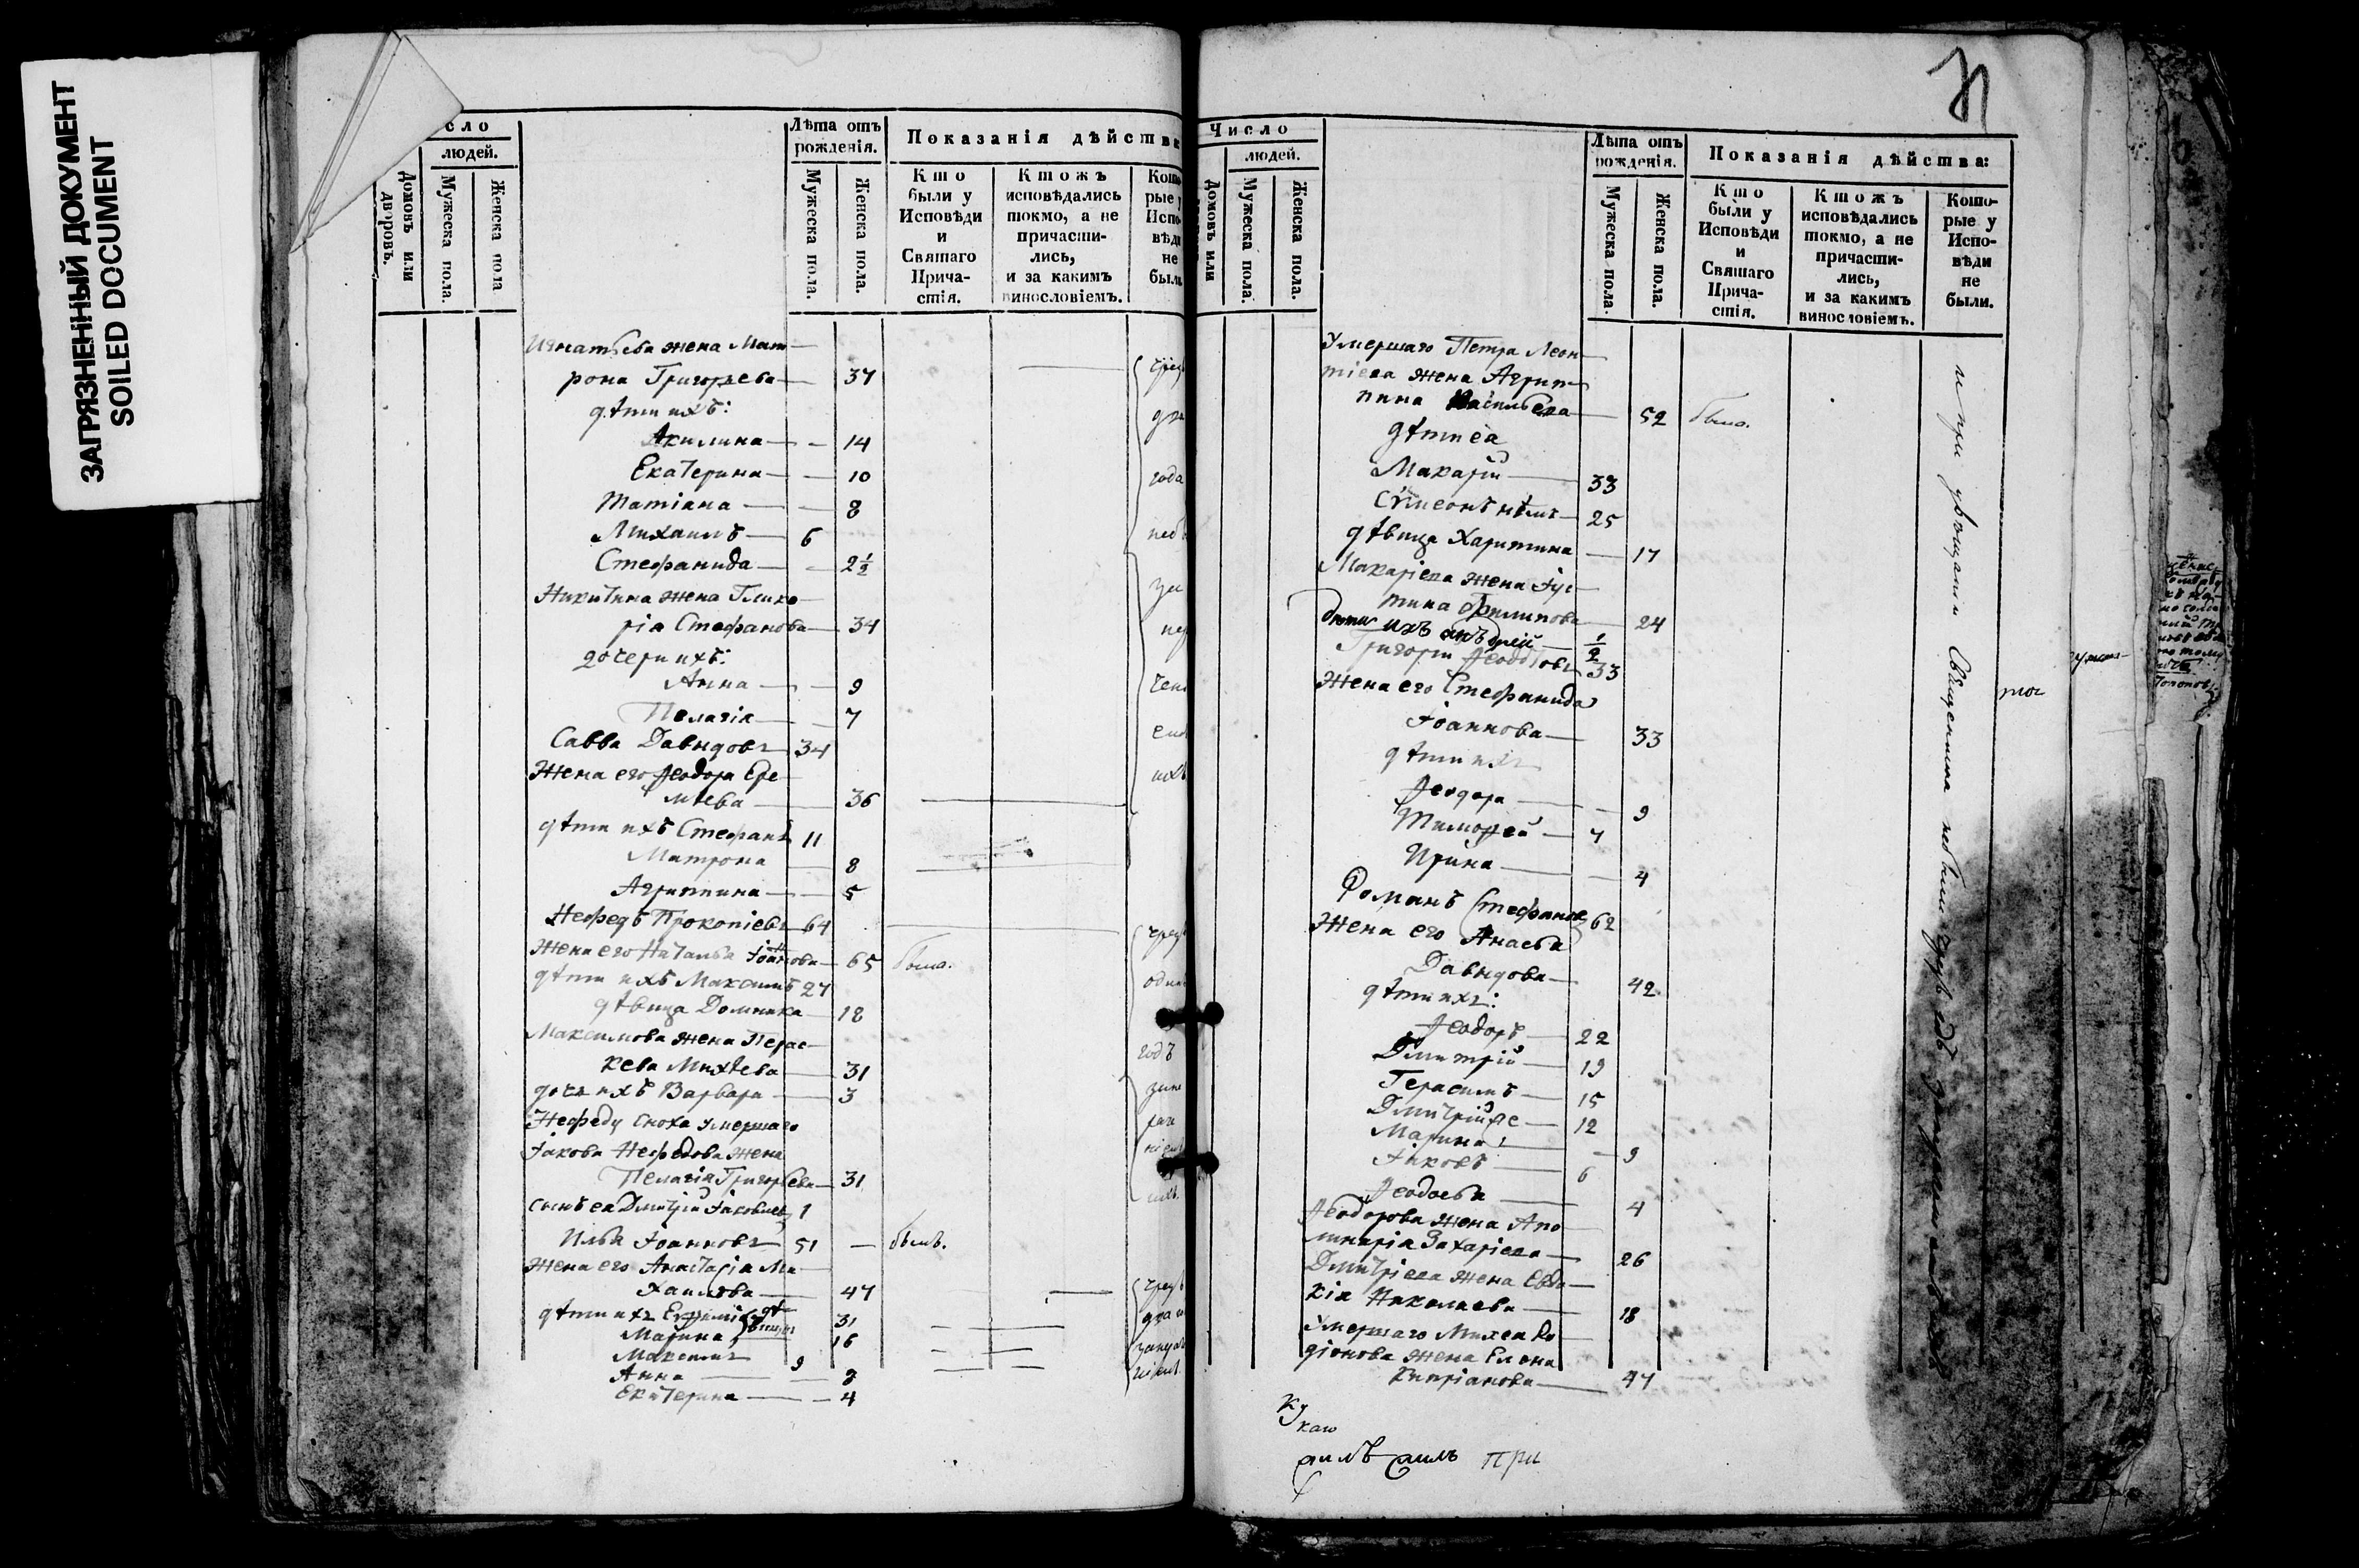 ЗАГРЯЗНЕННЫЙ ДОКУМЕНТ
SOILED DOCUMENT
сло
людей.
Домовъ или дворовъ.
Мужеска пола.
Женска пола
Лѣта отъ рожденія.
Мужеска пола.
Женска пола.
Показанія дѣйства
Кто были у Исповѣди и Святаго Прича-стія.
Ктожъ исповѣдались токмо, а не причасти-лись, и за какимъ винословіемъ.
Кото рые у Испо вѣди не были
Игнатьева жена Мат
рона Григорьева — 37
дѣти ихъ:
Акилина — 14
Екатерина — 10
Татіана — 8
Михаилъ — 6
Стефанида — 2½
Никитина жена Глике
рія Стефанова — 34
дочери ихъ:
Анна — 9
Пелагія — 7
Савва Давыдовъ 34
Жена его Ѳеодора Ере
мѣева — 36
дѣти ихъ Стефанъ 11
Матрона — 8
Агриппина — 5
Нефедъ Прокопіевъ 64
Жена его Наталья Іоаннова — 65 была.
дѣти ихъ Максимъ 27
дѣвица Домника — 18
Максимова жена Парас
кева Михѣева — 31
дочь ихъ Варвара — 3
Нефеду сноха умершаго
Іакова Нефедова жена
Пелагія Григорьева — 31
сынъ ея Дмитрій Іаковлевъ 1
Илья Іоанновъ 51 — былъ.
Жена его Анастасія Ми
хаилова — 47
дѣти ихъ Евфимія дѣвицы 31
Марина 16
Максимъ 9
Анна — 8
Екатерина — 4
Число
людей.
Домовъ или
Мужеска пола.
Женска пола.
Лѣта отъ рожденія.
Мужеска пола.
Женска пола.
Показанія дѣйства:
Кто были у Исповѣди и Святаго Прича-стія.
Ктожъ исповѣдались токмо, а не причасти-лись, и за какимъ винословіемъ.
Кото-рые у Испо-вѣди не были.
Умершаго Петра Леон
тіева жена Агрип
пина Васильева — 52 была.
дѣти ея
Макарій — 33
Сѵмеонъ нѣмъ — 25
дѣвица Харитина — 17
Макаріева жена Іус
тина Филипова — 24
дѣти ихъ Андрей — ½
Григорій Ѳеодотовъ 33
Жена его Стефанида
Іоаннова — 33
дѣти ихъ
Ѳеодора — 9
Тимоѳей — 7
Ирина — 4
Романъ Стефановъ 62
Жена его Анастасія
Давыдова — 42
дѣти ихъ:
Ѳеодоръ — 22
Дмитрій — 19
Герасимъ — 15
Дмитрій 2е — 12
Марина — 9
Іаковъ — 6
Ѳеодосья — 4
Ѳеодорова жена Апо
линарія Захаріева — 26
Дмитріева жена Евдо
кія Николаева — 18
Умершаго Михея Ро
діонова жена Елена
Кипріанова — 47
ку
каю
аилъ аилъ при